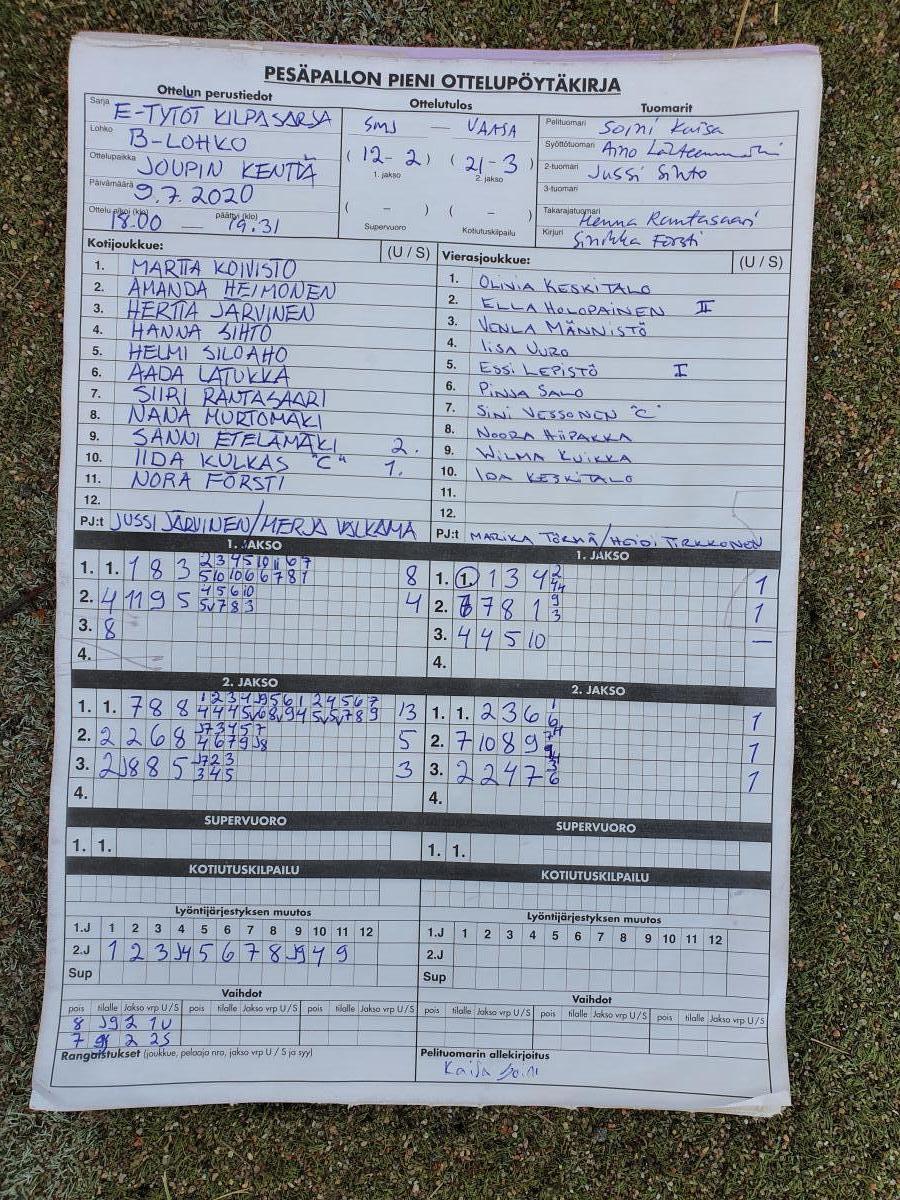 PESÄPALLON PIENI OTTELUPÖYTÄKIRJA
Ottelun perustiedot
Sarja E-TYTÖT KILPASARJA
Lohko B-LOHKO
Ottelupaikka JOUPIN KENTTÄ
Päivämäärä 9.7.2020
Ottelu alkoi (klo) 18.00 — päättyi (klo) 19.31
Ottelutulos
SMJ — VAASA
(12-2) (21-3)
1. jakso 2. jakso
( - ) ( - )
Supervuoro Kotiutuskilpailu
Tuomarit
Pelituomari Soini Kaisa
Syöttötuomari Aino
2-tuomari Jussi Sihto
3-tuomari
Takarajatuomari Henna Rantasaari
Kirjuri Sinikka Försti
Kotijoukkue: (U / S)
1. MARTTA KOIVISTO
2. AMANDA HEIMONEN
3. HERTTA JÄRVINEN
4. HANNA SIHTO
5. HELMI SILOAHO
6. AADA LATUKKA
7. SIIRI RANTASAARI
8. NANA MURTOMÄKI
9. SANNI ETELÄMÄKI 2.
10. IIDA KULKAS "C" 1.
11. NORA FÖRSTI
12.
PJ:t JUSSI JÄRVINEN/MERJA VALKAMA
Vierasjoukkue: (U / S)
1. OLIVIA KESKITALO
2. ELLA HOLOPAINEN II
3. VENLA MÄNNISTÖ
4. IISA VURO
5. ESSI LEPISTÖ I
6. PINJA SALO
7. SINI VESSONEN "C"
8. NOORA HIIPAKKA
9. WILMA KUIKKA
10. IDA KESKITALO
11.
12.
PJ:t MARIKA TÖRMÄ/HEIDI TIRKKONEN
1. JAKSO
1. 1. 1 8 3 8
2. 4 11 9 5 4
3. 8
4.
1. JAKSO
1. 1. 1 3 4 1
2. 7 8 1 1
3. 4 4 5 10 —
4.
2. JAKSO
1. 1. 7 8 8 13
2. 2 2 6 8 5
3. 2 J8 8 5 3
4.
2. JAKSO
1. 1. 2 3 6 1
2. 7 10 8 9 1
3. 2 2 4 7 1
4.
SUPERVUORO
1. 1.
SUPERVUORO
1. 1.
KOTIUTUSKILPAILU
KOTIUTUSKILPAILU
Lyöntijärjestyksen muutos
1.J 1 2 3 4 5 6 7 8 9 10 11 12
2.J 1 2 3 J4 5 6 7 8 J9 4 9
Sup
Lyöntijärjestyksen muutos
1.J 1 2 3 4 5 6 7 8 9 10 11 12
2.J
Sup
Vaihdot
pois tilalle Jakso vrp U / S pois tilalle Jakso vrp U / S pois tilalle Jakso vrp U / S
8 J9 2 1U
7 2 2S
Vaihdot
pois tilalle Jakso vrp U / S pois tilalle Jakso vrp U / S pois tilalle Jakso vrp U / S
Rangaistukset (joukkue, pelaaja nro, jakso vrp U / S ja syy)
Pelituomarin allekirjoitus
Kaisa Soini